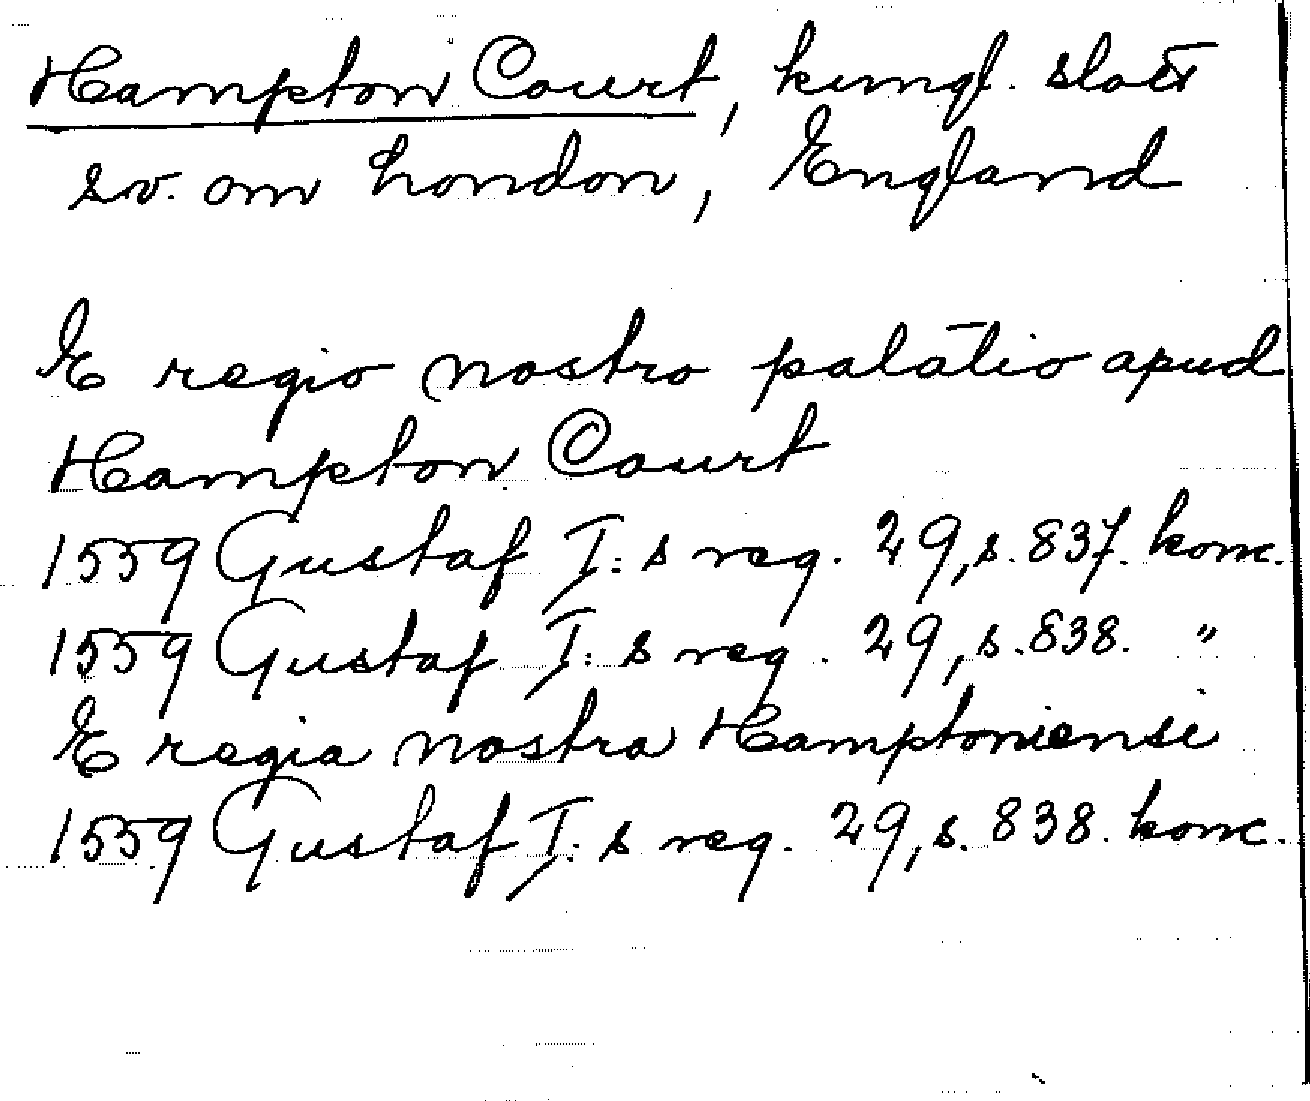 Hampton Court, kungl. slott
sv. om London, England
E regio nostro palatio apud
Hampton Court
1559 Gustaf I:s reg. 29, s. 837. konc.
1559 Gustaf I:s reg. 29, s. 838. "
E regia nostra Hamptoniensi
1559 Gustaf I:s reg. 29, s. 838. konc.